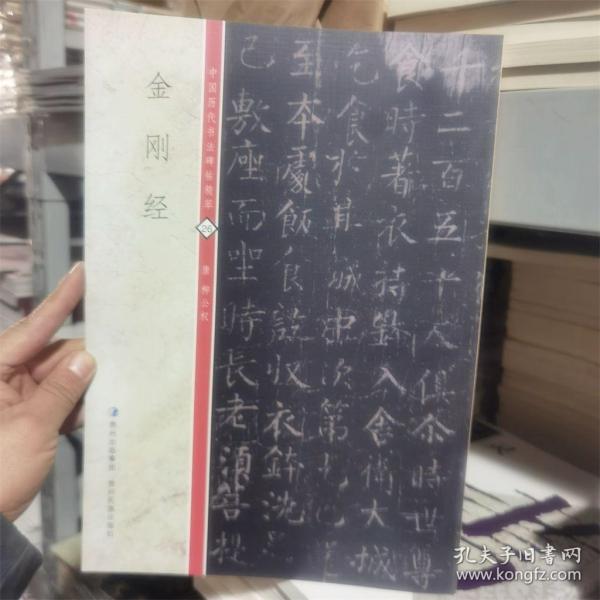 金刚经
中国历代书法碑帖精萃
26
唐 柳公权
贵州出版集团 贵州民族出版社
千二百五十人俱尒時世尊
食時著衣持鉢入舍衛大城
乞食於其城中次第乞已還
至本處飯食訖收衣鉢洗足
已敷座而坐時長老須菩提
孔夫子旧书网
www.kongfz.com